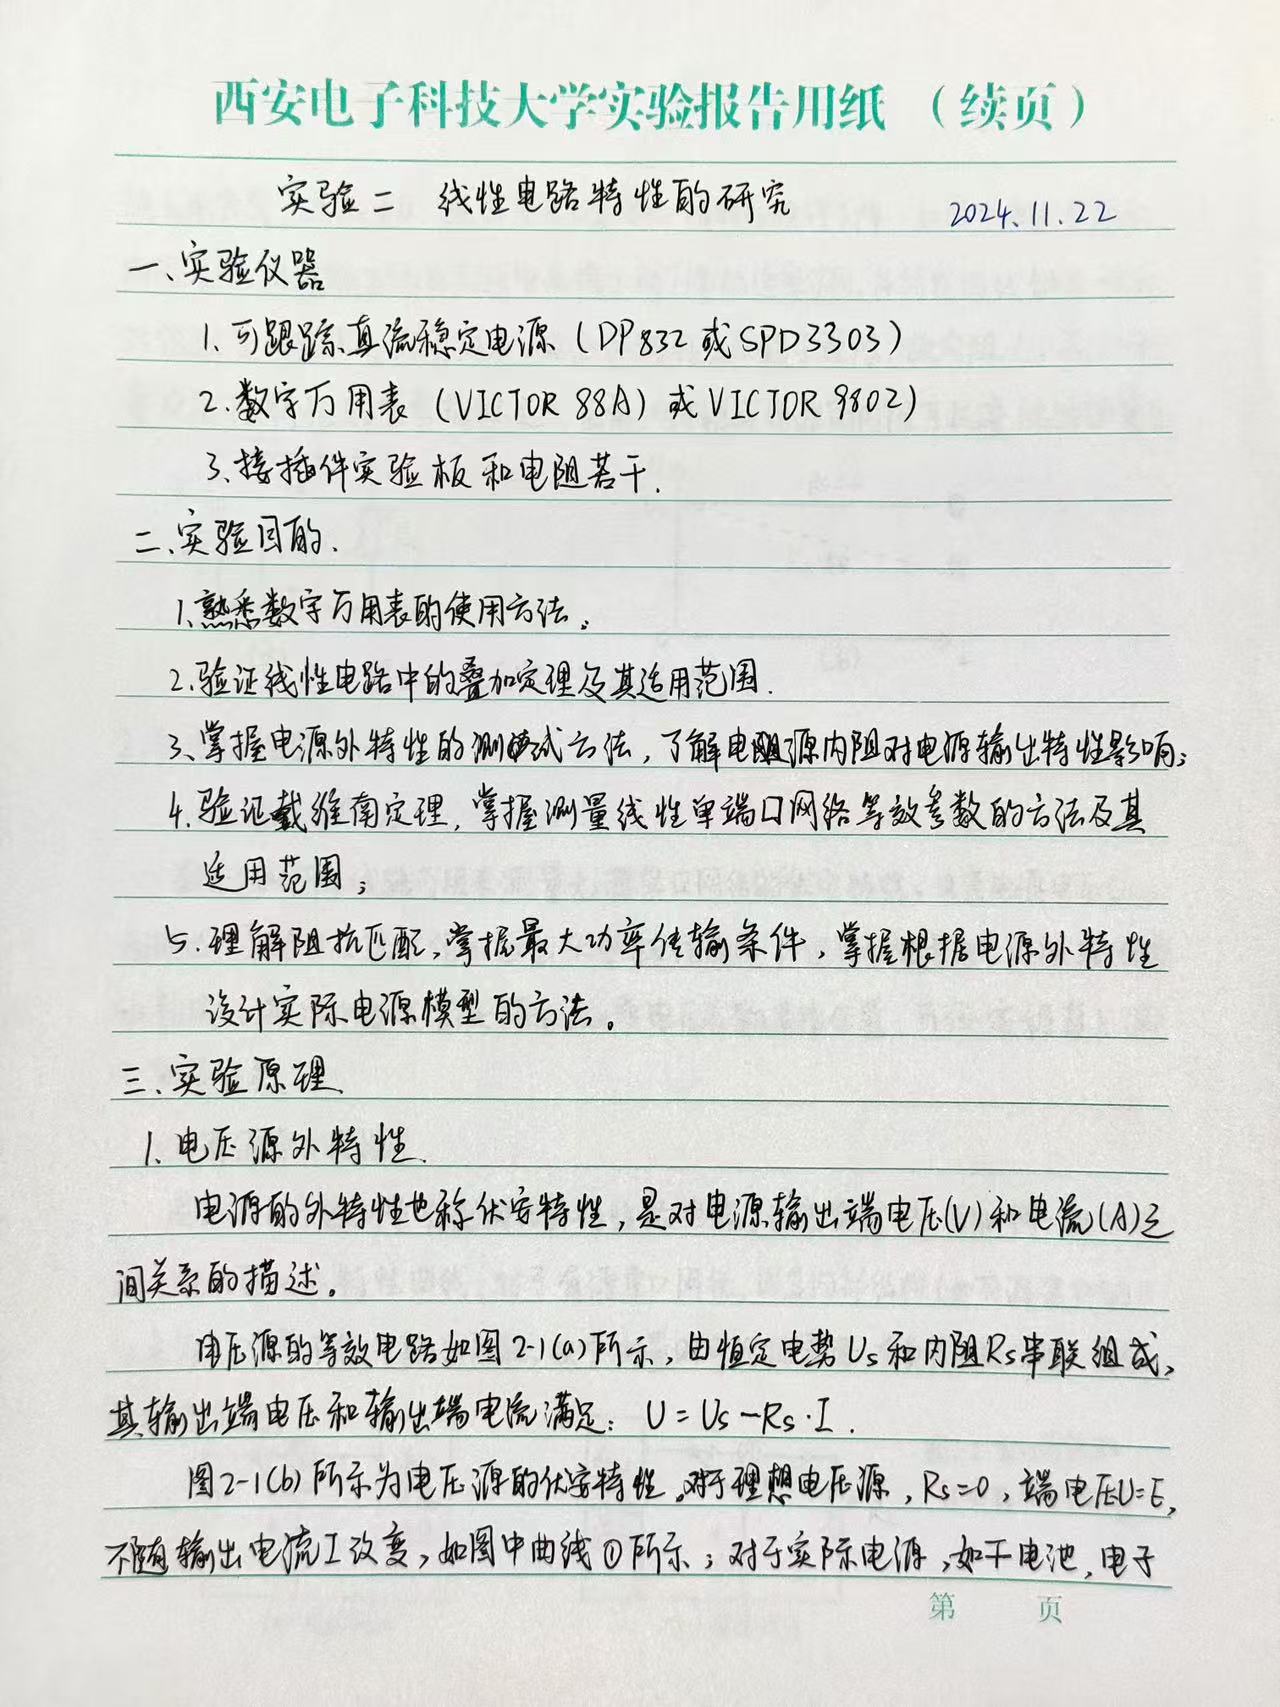 西安电子科技大学实验报告用纸（续页）
实验二 线性电路特性的研究 2024.11.22
一、实验仪器
1.可跟踪直流稳定电源（DP832或SPD3303）
2.数字万用表（VICTOR 88A）或VICTOR 9802）
3、接插件实验板和电阻若干.
二、实验目的.
1.熟悉数字万用表的使用方法。
2.验证线性电路中的叠加定理及其适用范围.
3、掌握电源外特性的测试方法，了解电源内阻对电源输出特性影响；
4.验证戴维南定理，掌握测量线性单端口网络等效参数的方法及其
适用范围；
5.理解阻抗匹配，掌握最大功率传输条件，掌握根据电源外特性
设计实际电源模型的方法。
三、实验原理.
1.电压源外特性.
电源的外特性也称伏安特性，是对电源输出端电压(V)和电流(A)之
间关系的描述。
电压源的等效电路如图2-1(a)所示，由恒定电势Us和内阻Rs串联组成，
其输出端电压和输出端电流满足：U=Us-Rs·I.
图2-1(b)所示为电压源的伏安特性。对于理想电压源，Rs=0，端电压U=E，
不随输出电流I改变，如图中曲线①所示；对于实际电源，如干电池，电子
第 页